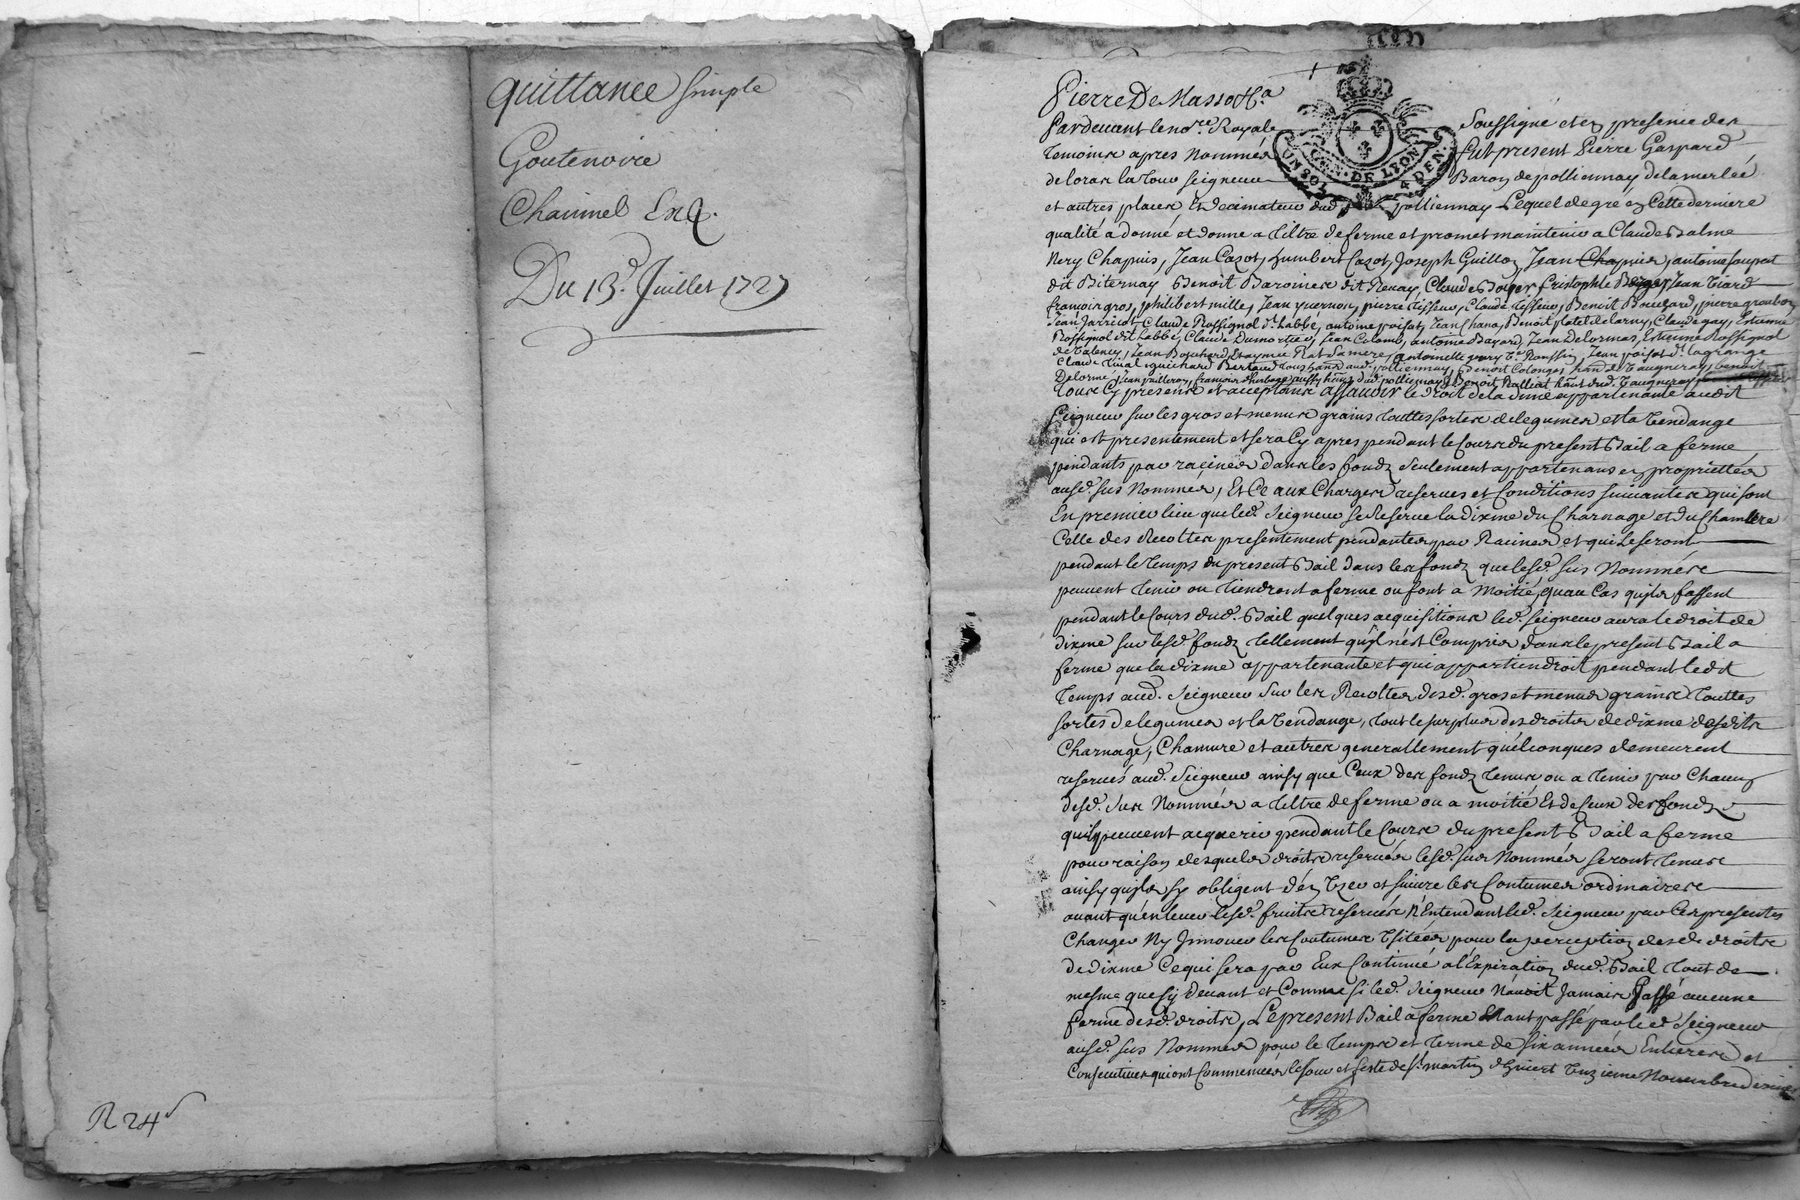 quittance simple
Goutenoire
Chaumel
Du 13.e Juillet 1727
R 24
GEN. DE LYON
UN SOL 4 DEN.
Pierre De Masso
Pardevant le no.re Royale Soussigné et en presence des
temoins apres Nommés fut present Pierre Gaspard
de loras la tour seigneur Baron de pollionnay delamerleé
et autres places Et decimateur dud pollionnay Lequel de gré en Cette derniere
qualité a donné et donne a tiltre de ferme et promet maintenir a Claude Balme
Nery Chapuis, Jean Cazot, humbert Cazot, Joseph Guillon, Jean Chapuis, antoine
dit Biternay Benoit Baronier dit Claude Boyer Cristophle Jean
francois gros, philibert mille, Jean pierre tisseur, Claude tisseur, Benoit pierre
Jean Jarricot Claude Rossignol d.t labbé, antoine poisat, Jean Benoit Claude gay, Estienne
Rossignol dit labbé, Claude Dumortier, Jean Colomb, antoine Bayard, Jean Delorme, Estienne Rossignol
de Jean Bouchard, antoinette Jean poisat d.t lagrange
Claude guichard tous hans aud. pollionnay, Benoit Colonge,
Delorme, Jean francois dud. pollionnay Benoit
tous Cy presents et acceptans assavoir le droit de la dime appartenante audit
Seigneur sur les gros et menus grains touttes sortes de legumes et la Vendange
qui est presentement et sera Cy apres pendant le Cours du present Bail a ferme
pendants par racines dans les fonds seulement appartenans en proprietté
ausd. sus Nommés, Et Ce aux Charges reserves et Conditions suivantes qui sont
En premier lieu que led. Seigneur se Reserve la dixme du Charnage et du
Celle des Recoltes presentement pendantes par Racines et qui Le seront
pendant le temps du present Bail dans les fonds que lesd. sus Nommés
peuvent tenir ou tiendront a ferme ou font a Moitié, quau Cas quils fassent
pendant le Cours dud. Bail quelques acquisitions led. seigneur aura le droit de
dixme sur lesd. fonds tellement quil nest Compris dans le present Bail a
ferme que la dixme appartenante et qui appartiendroit pendant ledit
temps aud. Seigneur sur les Recoltes desd. gros et menus grains touttes
sortes de legumes et la Vendange, tout le surplus des droits de dixme desdits
Charnage, et autres generallement quélconques demeurent
reservés aud. Seigneur ainsy que Ceux des fonds tenus ou a tenir par Chacun
desd. sus Nommés a tiltre de ferme ou a moitié Et de Ceux des fonds
quils peuvent acquerir pendant le Cours du present Bail a ferme
pour raison desquels droits reservés lesd. sus Nommés seront tenus
ainsy quils sy obligent d'én Vzer et suivre les Coutumes ordinaires
avant qu'enlever lesd. fruits reservés N'Entendant led. Seigneur par Ces presentes
Changer Ny Jnnover les Coutumes Vsitées pour la perception desd. droits
de dixme Ce qui sera par Eux Continué a l'Expiration dud. Bail tout de
mesme que sy devant et Comme si led. Seigneur N'avoit Jamais passé aucune
ferme desd. droits, Le present Bail a ferme Etant passé par led Seigneur
ausd. sus Nommés pour le temps et terme de six années Entieres et
Consecutives qui ont Commencées le jour et feste de S.t martin d'hivert Vnzieme Novembre dernier